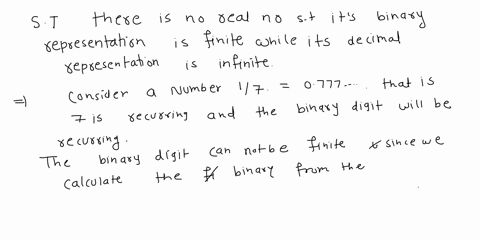 S.T there is no real no s.t it's binary
representation is finite while its decimal
representation is infinite.
=) Consider a Number 1/7. = 0.777.... that is
7 is recurring and the binary digit will be
recurring.
The binary digit can not be finite since we
calculate the binary from the